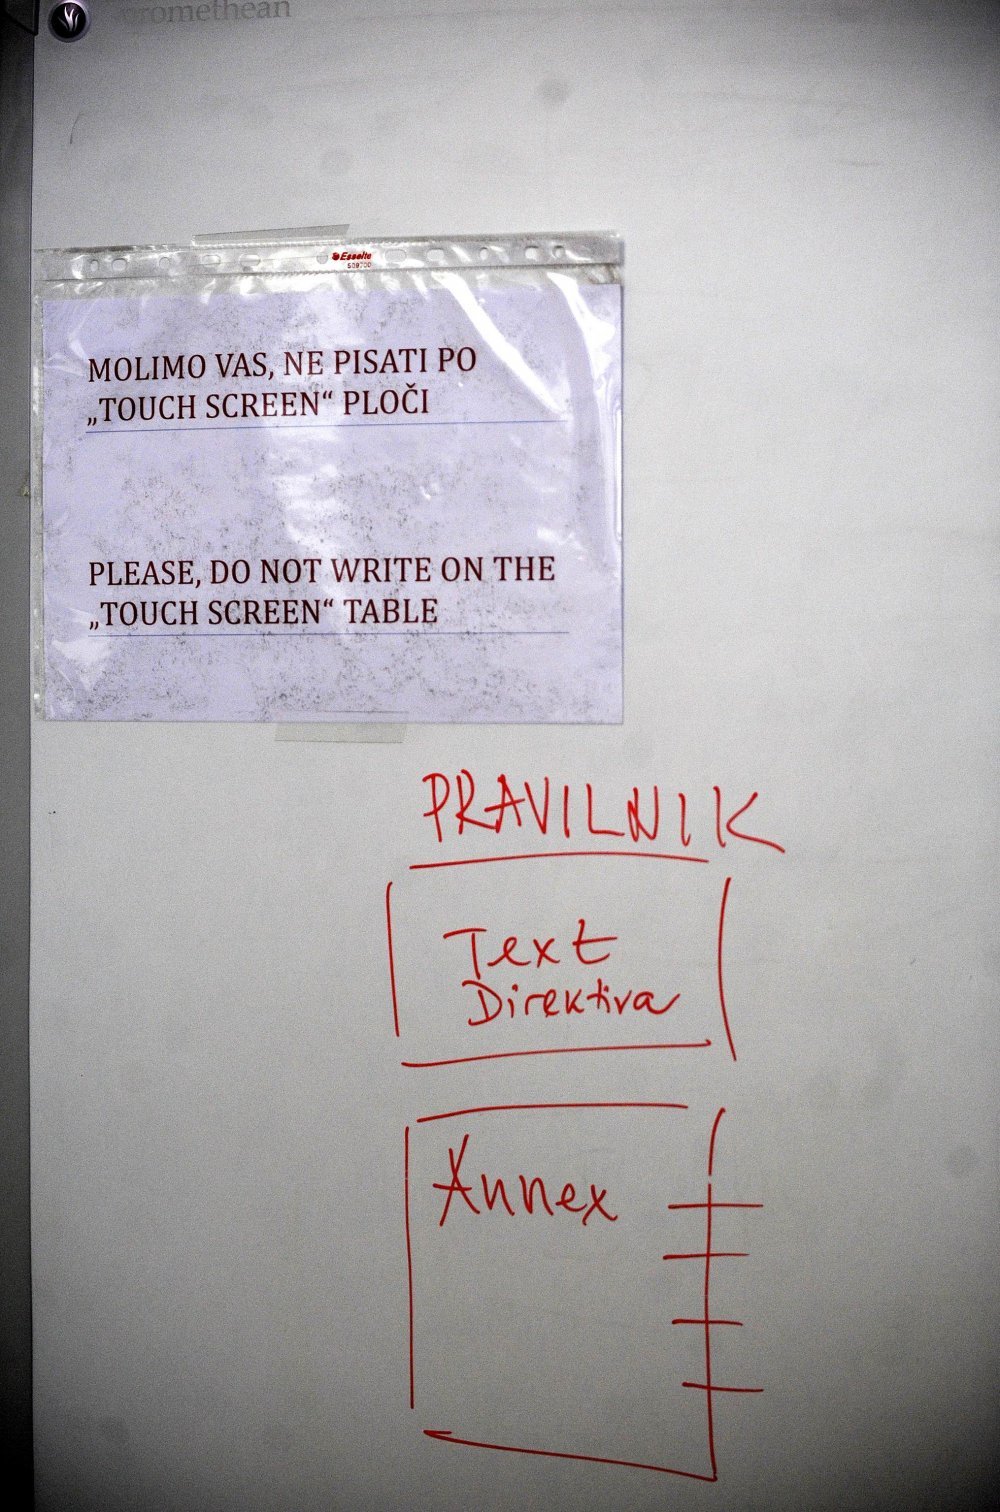 promethean
Esselte
MOLIMO VAS, NE PISATI PO
„TOUCH SCREEN“ PLOČI
PLEASE, DO NOT WRITE ON THE
„TOUCH SCREEN“ TABLE
PRAVILNIK
Text
Direktiva
Annex